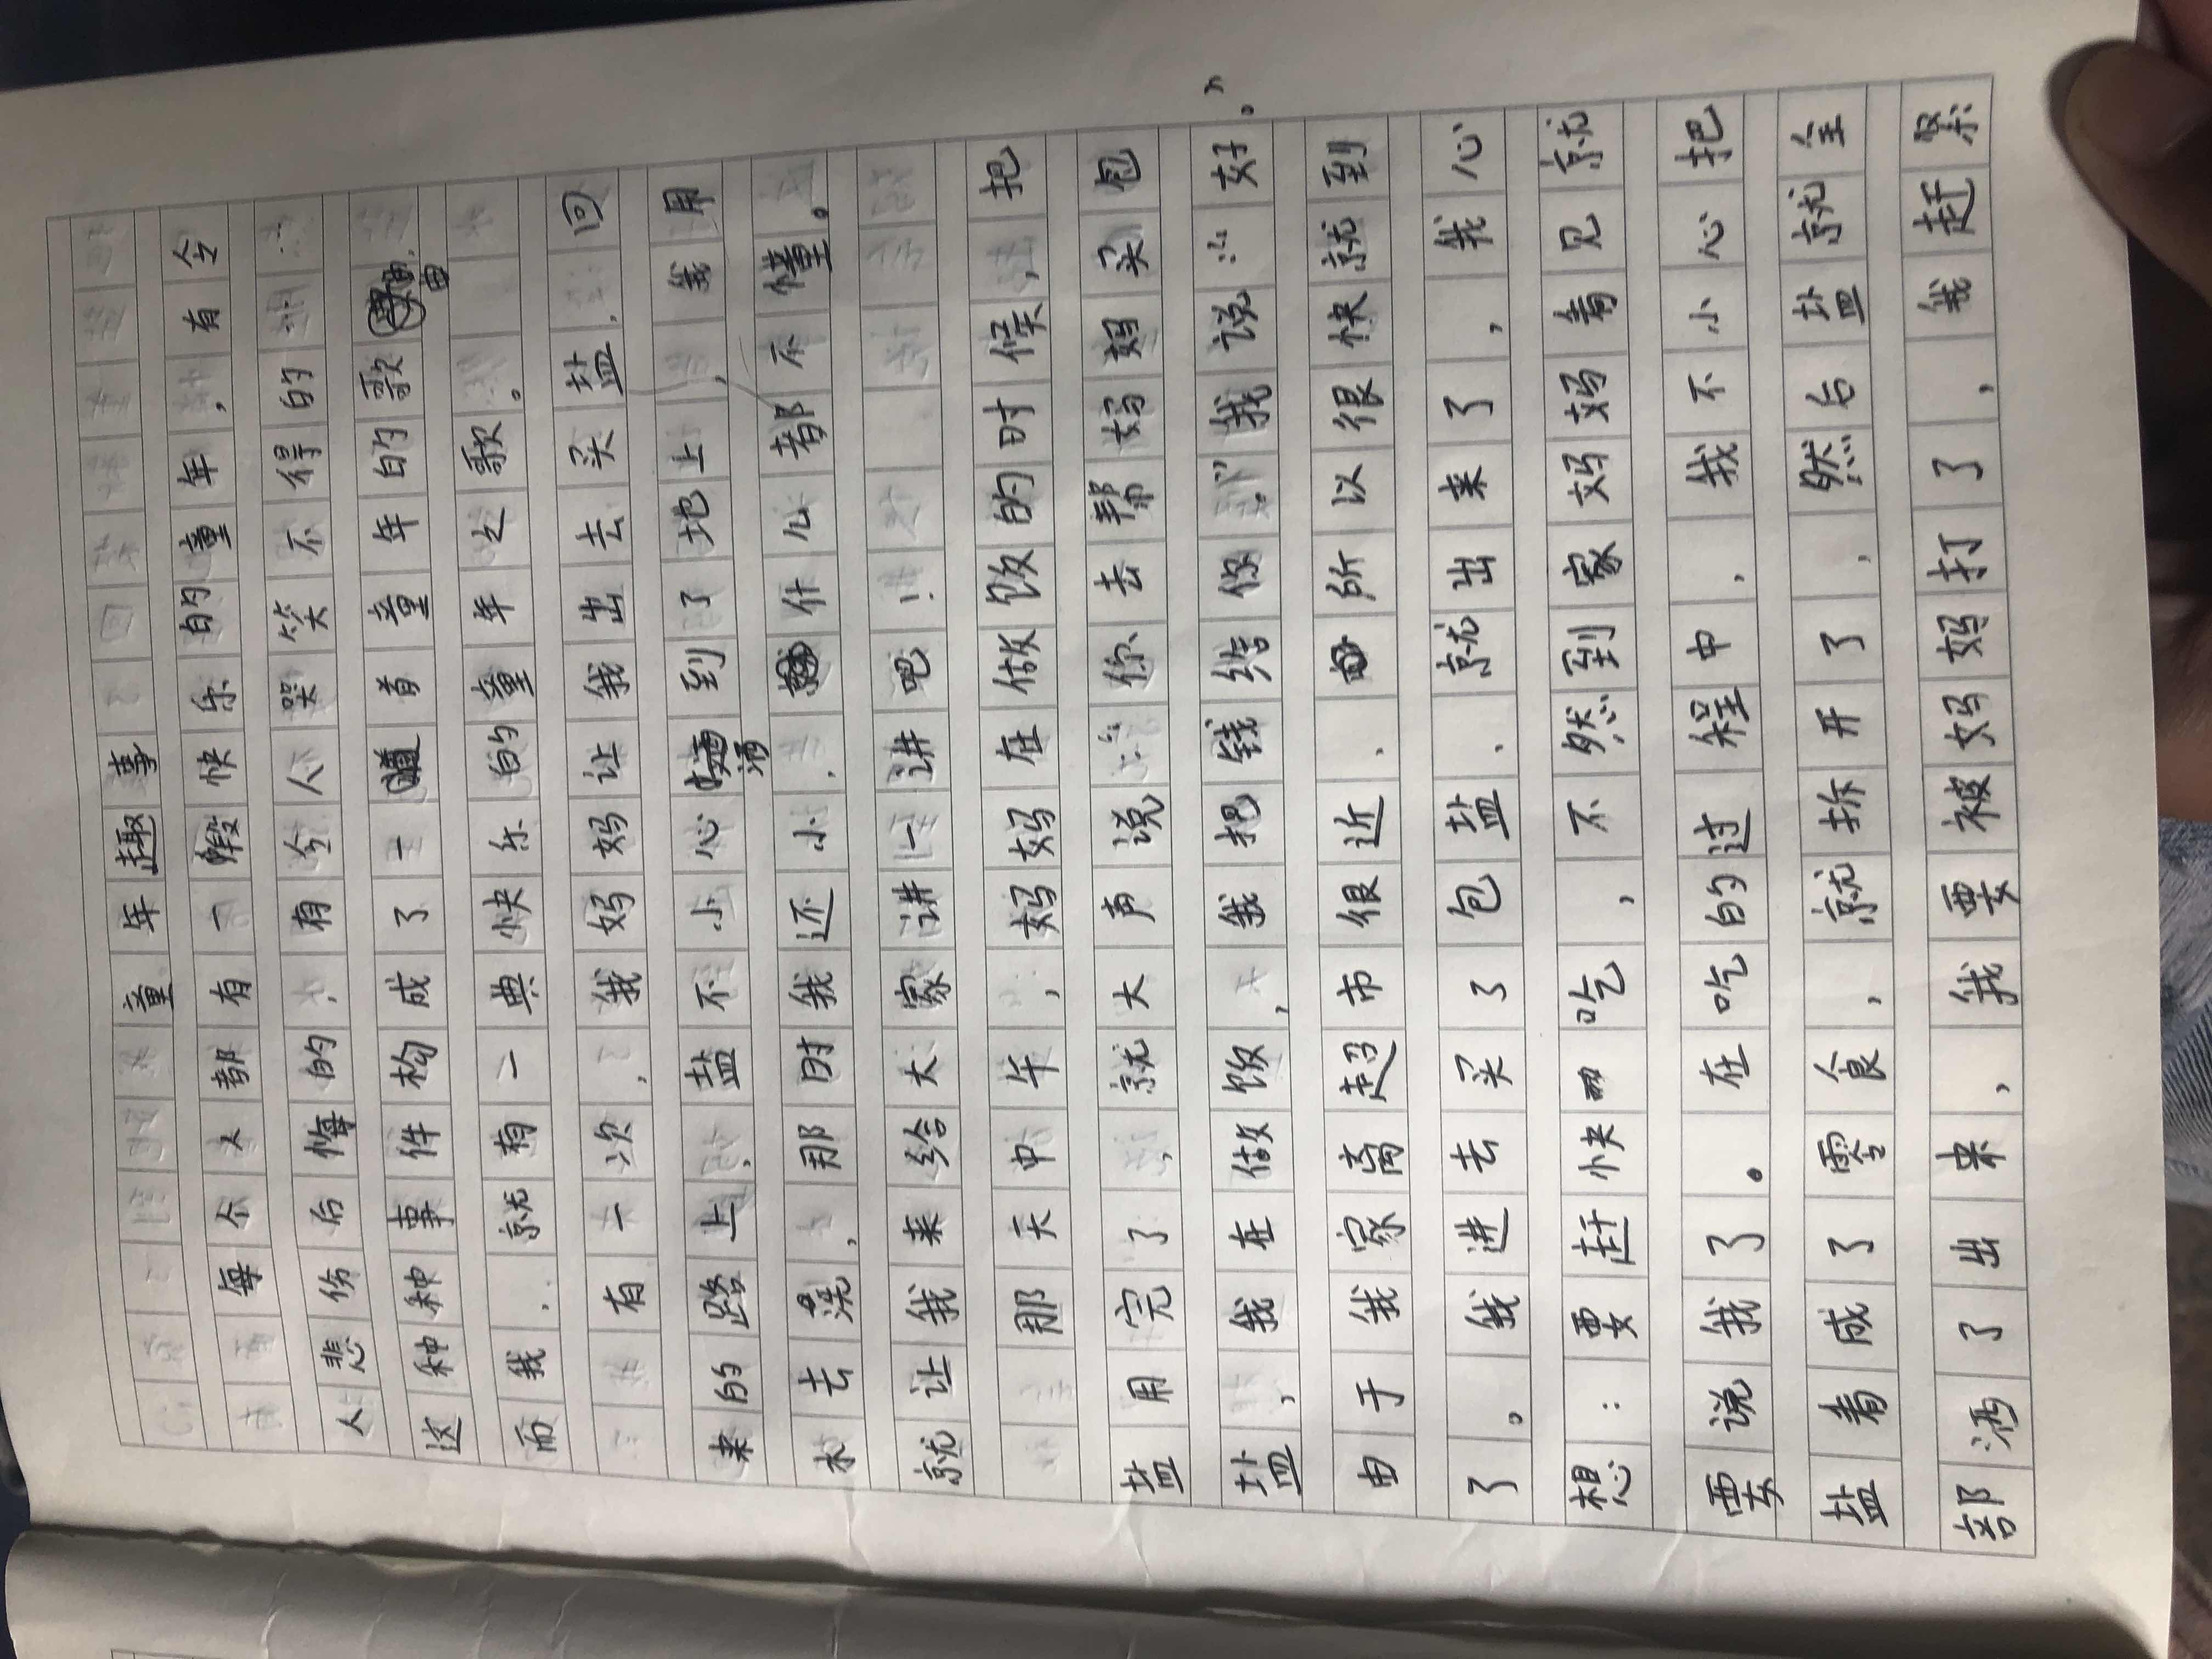 童年趣事
每个人都有一段快乐的童年，有令
人悲伤后悔的，有令人哭笑不得的
这种种事件构成了一首童年的歌曲，
而我，就有一典快乐的童年之歌。
有一次，我妈妈让我出去买盐，回
来的路上，盐不小心洒到了地上，我用
水去洗，那时我还小，什么都不懂。
就让我来给大家讲一讲吧！
那天中午，妈妈在做饭的时候，把
盐用完了，就大声说：你去帮妈妈买包
盐，我在做饭，我把钱给你。”我说：“好。”
由于我家离超市很近，所以很快就到
了。我进去买了包盐，就出来了，我心
想：要赶快吃，不然到家妈妈看见就
要说我了。在吃的过程中，我不小心把
盐看成了零食，就拆开了，然后盐就全
部洒了出来，我要被妈妈打了，我赶紧